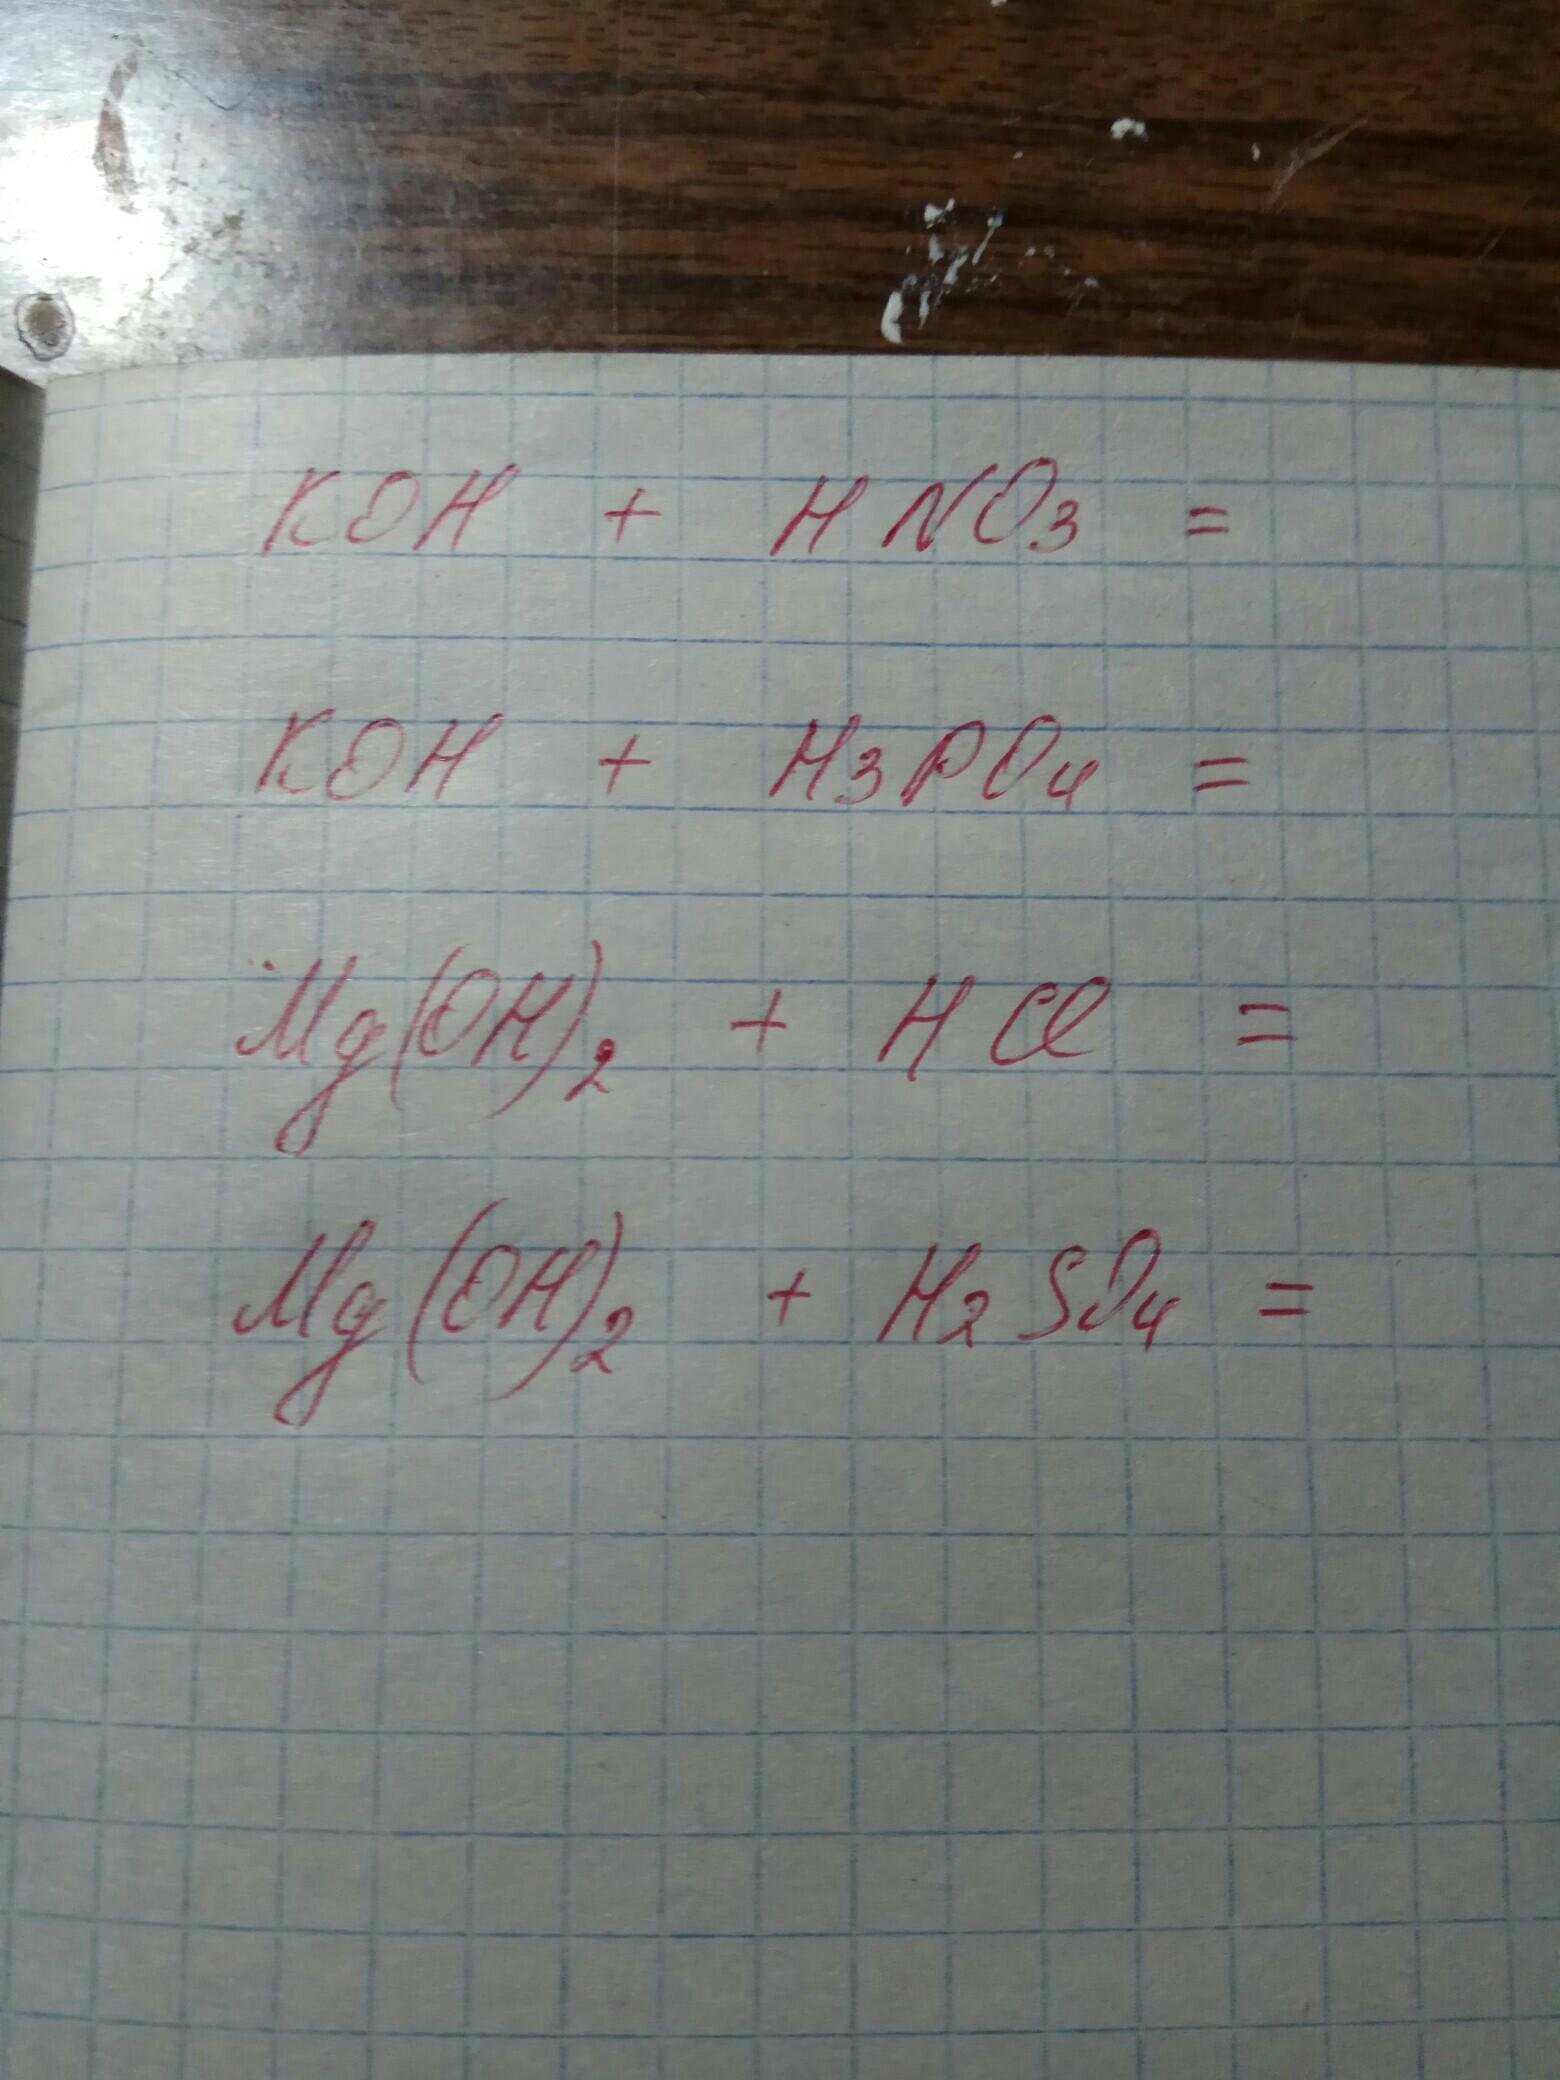 KOH + HNO3 =
KOH + H3PO4 =
Mg(OH)2 + HCl =
Mg(OH)2 + H2SO4 =